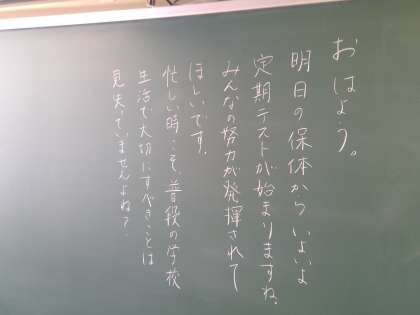 おはよう。
明日の保体からいよいよ
定期テストが始まりますね。
みんなの努力が発揮されて
ほしいです。
忙しい時こそ、普段の学校
生活で大切にすべきことは
見失っていませんよね？